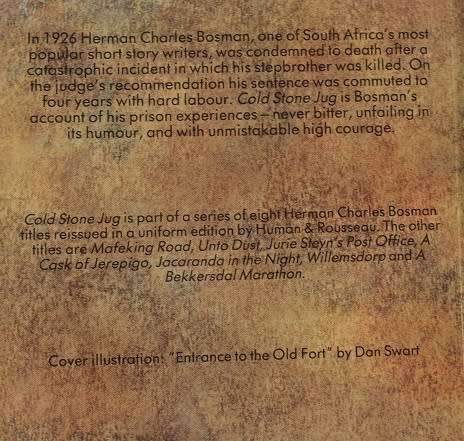 In 1926 Herman Charles Bosman, one of South Africa's most
popular short story writers, was condemned to death after a
catastrophic incident in which his stepbrother was killed. On
the judge's recommendation his sentence was commuted to
four years with hard labour. Cold Stone Jug is Bosman's
account of his prison experiences – never bitter, unfailing in
its humour, and with unmistakable high courage.
Cold Stone Jug is part of a series of eight Herman Charles Bosman
titles reissued in a uniform edition by Human & Rousseau. The other
titles are Mafeking Road, Unto Dust, Jurie Steyn's Post Office, A
Cask of Jerepigo, Jacaranda in the Night, Willemsdorp and A
Bekkersdal Marathon.
Cover illustration: "Entrance to the Old Fort" by Dan Swart